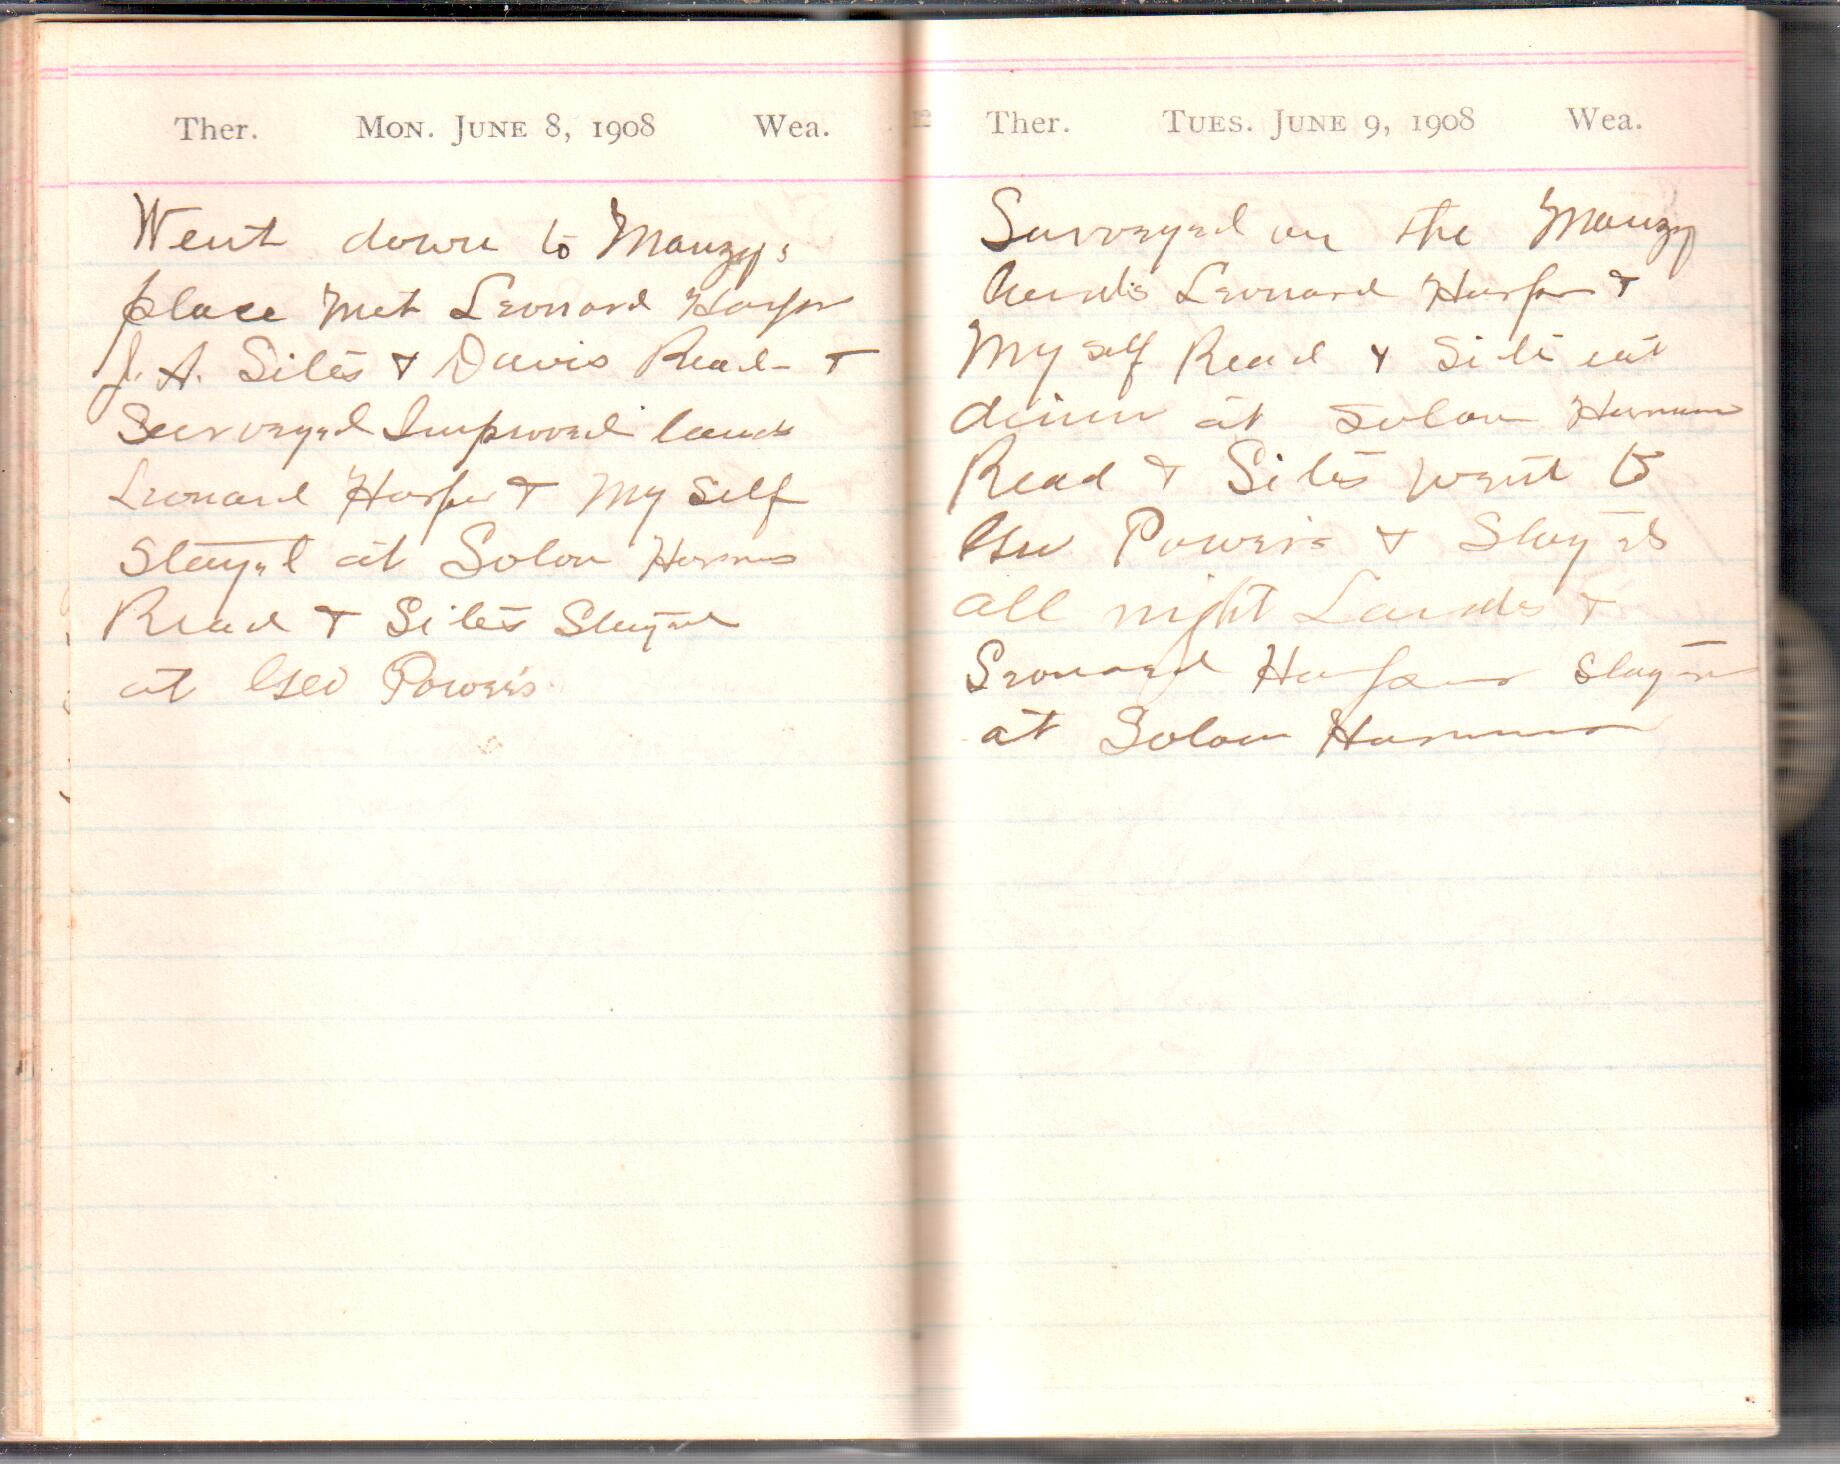 Ther. Mon. June 8, 1908 Wea.
Went down to Mauzys
place Met Leonard Harper
J. A. Sites & Davis Read &
Surveyed Improved lands
Leonard Harper & My Self
Stayed at Solon
Read & Sites Stayed
at Geo Powers
Ther. Tues. June 9, 1908 Wea.
Surveyed on the Mauzy
Leonard Harper &
My self Read & Sites eat
at Solon
Read & Sites went to
Geo Powers & Stayed
all night &
Leonard Harper Stayed
at Solon